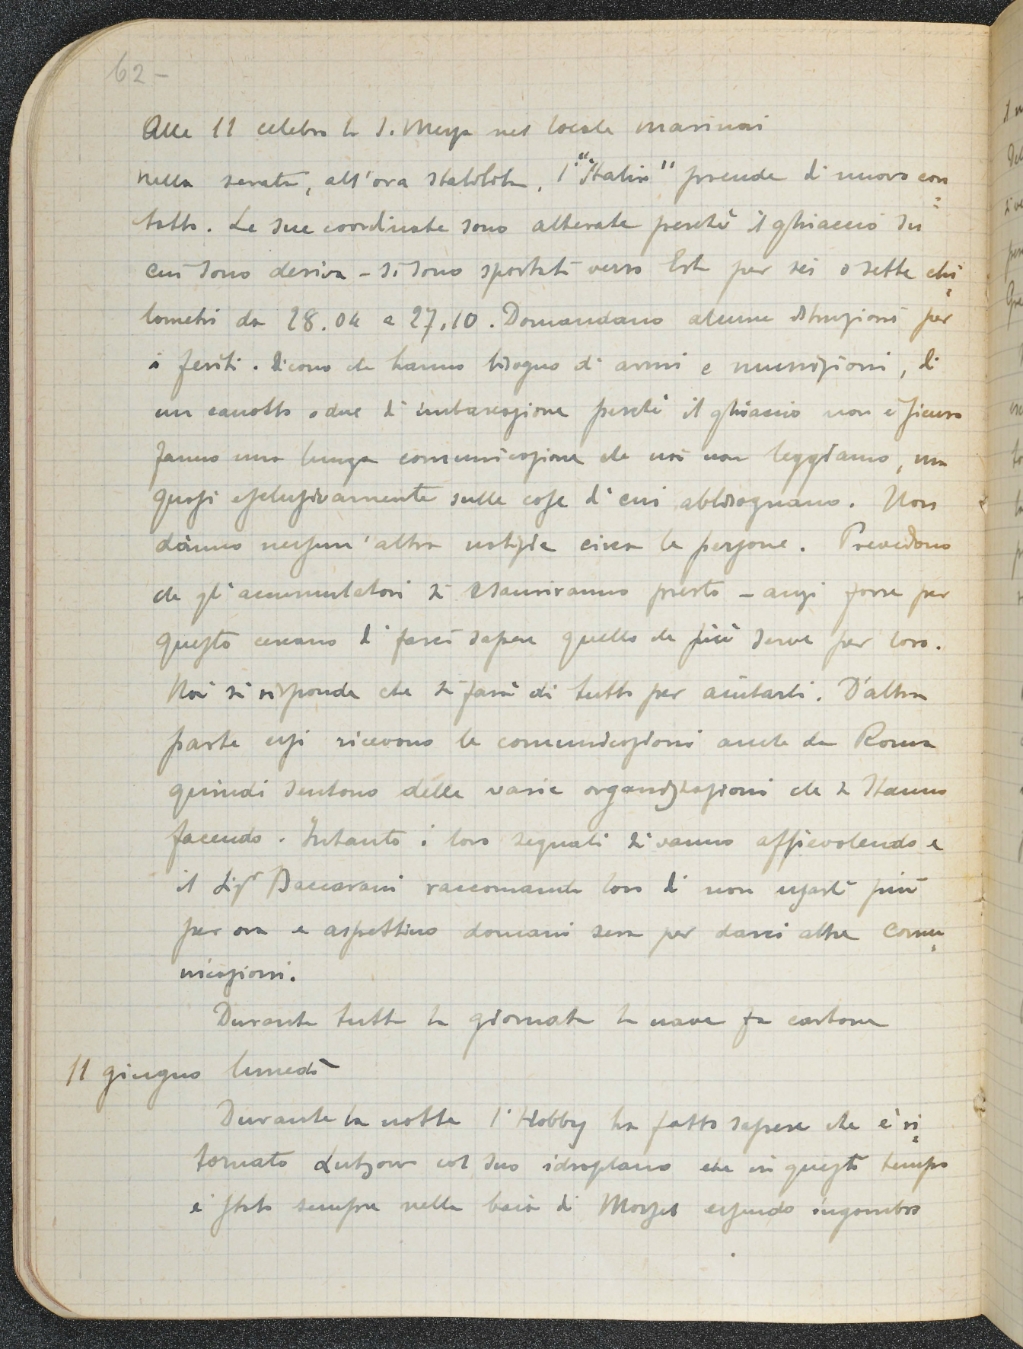 62-
Alle 11 celebro la S. Messa nel locale marinai
nella serata, all'ora stabilita, l'"Italia" prende di nuovo con
tatto. Le sue coordinate sono alterate perchè il ghiaccio su
cui sono deriva - si sono spostati verso Est per sei o sette chi
lometri da 28.04 a 27.10. Domandano alcune istruzioni per
i feriti. Dicono che hanno bisogno di armi e munizioni, di
un canotto o due di imbarcazione perchè il ghiaccio non è sicuro
fanno una lunga comunicazione che noi non leggiamo, ma
quasi esclusivamente sulle cose di cui abbisognano. Non
dànno nessun'altra notizia circa le persone. Prevedono
che gli accumulatori si esauriranno presto - anzi forse per
questo cercano di farci sapere quello che più serve per loro.
Noi si risponde che si farà di tutto per aiutarli. D'altra
parte essi ricevono le comunicazioni anche da Roma
quindi sentono delle varie organizzazioni che si stanno
facendo. Intanto i loro segnali si vanno affievolendo e
il Sigr Baccarani raccomanda loro di non usarli più
per ora e aspettino domani sera per darci altre comu
nicazioni.
Durante tutta la giornata la nave fa carbone
11 giugno lunedì
Durante la notte l'Hobby ha fatto sapere che è ri
tornato Lutzow col suo idroplano che in questo tempo
è stato sempre nella baia di Mossel essendo ingombro